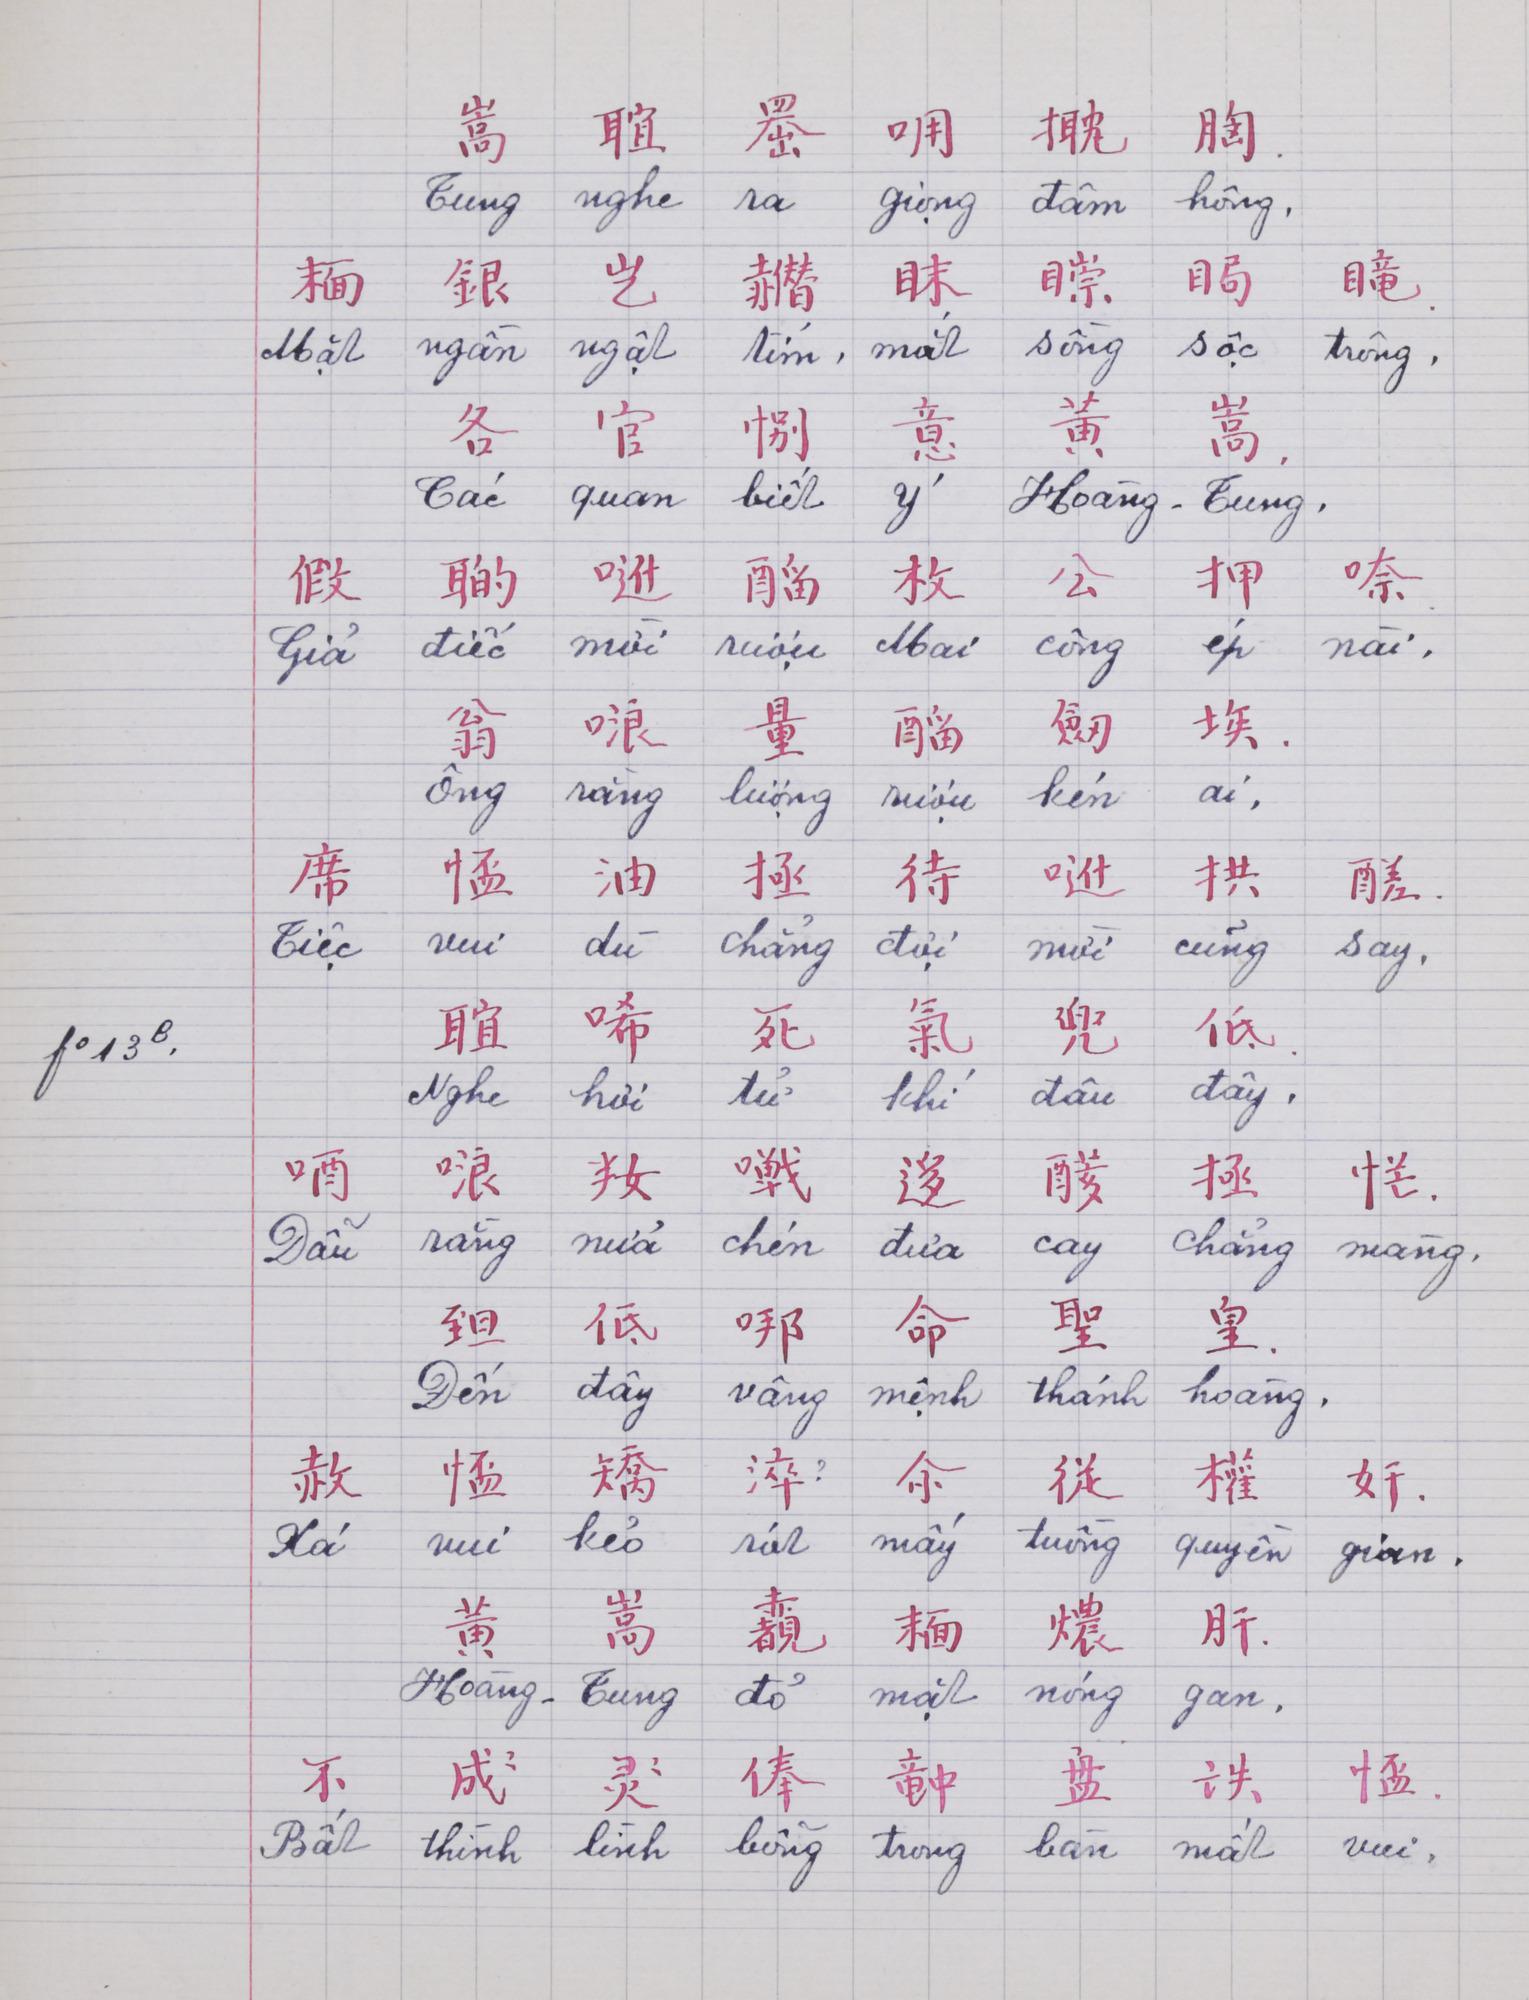 嵩 聢 𠚢 哃 𢬗 胸.
Tung nghe ra giọng đâm hông,
𩈘 銀 屹 䞶 眜 𥊀 𥆁 瞳.
Mặt ngần ngật tím, mắt sồng sộc trông,
各 官 別 意 黃 嵩.
Các quan biết ý Hoàng-Tung,
假 𦖑 𠶆 𨢇 枚 公 押 㖠.
Giả điếc mời rượu Mai công ép nài,
翁 哴 量 𨢇 劔 埃.
Ông rằng lượng rượu kén ai,
席 㤝 油 拯 待 𠶆 拱 醝.
Tiệc vui dù chẳng đợi mời cũng say,
f° 13 b.
唏 死 氣 兜 低.
Nghe hơi tử khí đâu đây,
哴 拯 恾.
Dẫu rằng nửa chén đưa cay chẳng màng,
低 𠳐 命 聖 皇.
Đến đây vâng mệnh thánh hoàng,
赦 㤝 矯 淬? 余 從 權 奸.
Xá vui kẻo rót mấy tuồng quyền gian,
黃 嵩 𩈘 燶 肝.
Hoàng-Tung đỏ mặt nóng gan,
不 成 灵 俸 𥪝 盤 𠅍 㤝.
Bất thình lình bỗng trong bàn mất vui,